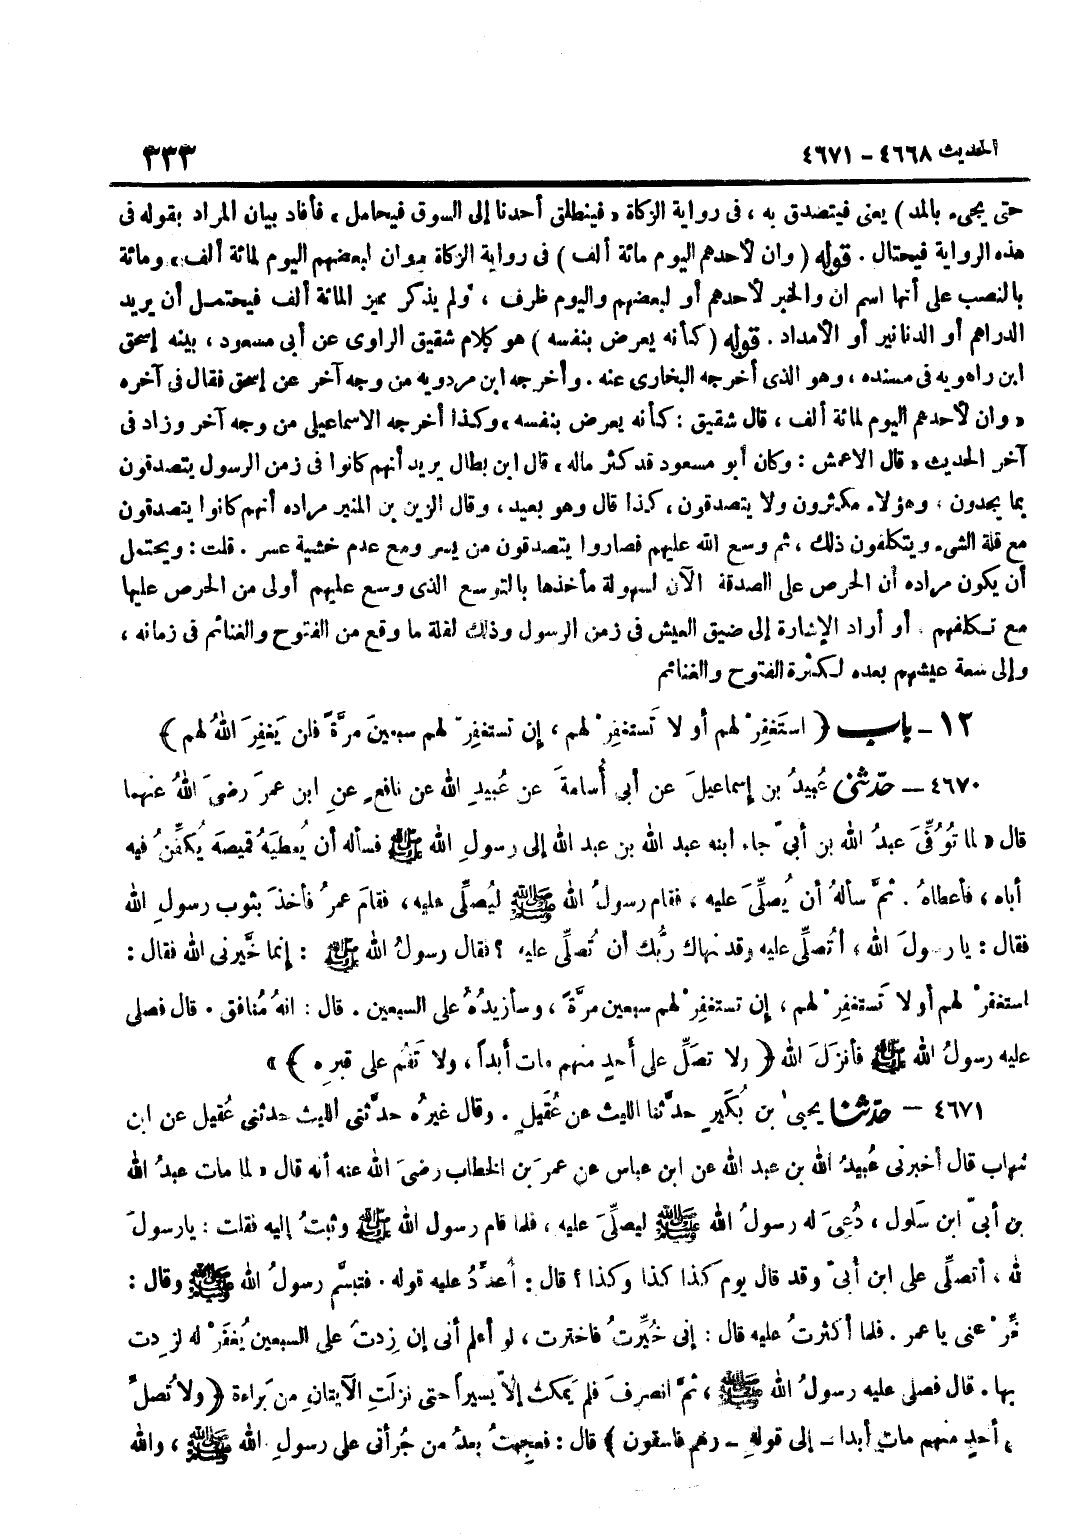 الحديث ٤٦٦٨ - ٤٦٧١ ٣٣٣
حتى يجىء بالمد ) يعنى فيتصدق به ، فى رواية الزكاة « فينطلق أحدنا إلى السوق فيحامل » فأفاد بيان المراد بقوله فى
هذه الرواية فيحتال . قوله ( وان لأحدهم اليوم مائة ألف ) فى رواية الزكاة « وان لبعضهم اليوم لمائة ألف » ومائة
بالنصب على أنها اسم ان والخبر لأحدهم أو لبعضهم واليوم ظرف ، ولم يذكر مميز المائة ألف فيحتمل أن يريد
الدراهم أو الدنانير أو الأمداد . قوله ( كأنه يعرض بنفسه ) هو كلام شقيق الراوى عن أبى مسعود ، بينه إسحق
ابن راهويه فى مسنده ، وهو الذى أخرجه البخارى عنه . وأخرجه ابن مردويه من وجه آخر عن إسحق فقال فى آخره
« وان لأحدهم اليوم لمائة ألف ، قال شقيق : كأنه يعرض بنفسه » وكذا أخرجه الاسماعيلى من وجه آخر وزاد فى
آخر الحديث « قال الاعمش : وكان أبو مسعود قد كثر ماله » قال ابن بطال يريد أنهم كانوا فى زمن الرسول يتصدقون
بما يجدون ، وهؤلاء مكثرون ولا يتصدقون ، كذا قال وهو بعيد ، وقال الزين بن المنير مراده أنهم كانوا يتصدقون
مع قلة الشىء ويتكلفون ذلك ، ثم وسع الله عليهم فصاروا يتصدقون من يسر ومع عدم خشية عسر . قلت : ويحتمل
أن يكون مراده أن الحرص على الصدقة الآن لسهولة مأخذها بالتوسع الذى وسع عليهم أولى من الحرص عليها
مع تكلفهم . أو أراد الإشارة إلى ضيق العيش فى زمن الرسول وذلك لقلة ما وقع من الفتوح والغنائم فى زمانه ،
وإلى سعة عيشهم بعده لكثرة الفتوح والغنائم
١٢ - باب ﴿ استَغفِرْ لهم أو لا تَستغفِرْ لهم ، إن تستغفِرْ لهم سبعينَ مرَّةً فلن يَغفِرَ اللهُ لهم ﴾
٤٦٧٠ - حدّثنى عُبيدُ بن إسماعيلَ عن أبى أُسامةَ عن عُبيدِ الله عن نافعٍ عنِ ابن عمرَ رضىَ اللهُ عنهما
قال « لما تُوُفِّىَ عبدُ الله بن أبىّ جاء ابنه عبد الله بن عبد الله إلى رسولِ الله ﷺ فسأله أن يُعطيَهُ قميصَه يُكفِّنُ فيه
أباه ، فأعطاهُ . ثمَّ سألهُ أن يُصلِّىَ عليه ، فقام رسولُ الله ﷺ ليُصلِّى عليه ، فقامَ عمرُ فأخذَ بثوب رسولِ الله
فقال : يا رسولَ الله ، أتُصلِّى عليه وقد نهاك ربُّك أن تُصلِّى عليه ؟ فقال رسولُ الله ﷺ : إنما خيَّرنى الله فقال :
استغفرْ لهم أو لا تَستغفِرْ لهم ، إن تستغفِرْ لهم سبعين مرَّةً ، وسأزيدُهُ على السبعين . قال : انهُ مُنافق . قال فصلى
عليه رسولُ الله ﷺ فأنزَلَ الله ﴿ ولا تصَلِّ على أَحدٍ منهم مات أبداً ، ولا تَقُم على قبرِه ﴾ »
٤٦٧١ - حدّثنا يحيىٰ بن بُكَيرٍ حدَّثنا الليث عن عُقَيلٍ . وقال غيرُه حدَّثنى الليث حدثنى عُقيل عن ابن
شهاب قال أخبرنى عُبيدُ الله بن عبد الله عن ابن عباس عن عمرَ بن الخطاب رضىَ الله عنه أنه قال « لما مات عبدُ الله
بن أبىّ ابن سَلول ، دُعىَ له رسولُ الله ﷺ ليصلِّىَ عليه ، فلما قام رسول الله ﷺ وثَبتُ إليه فقلت : يارسولَ
الله ، أتصلِّى على ابن أبىّ وقد قال يوم كذا كذا وكذا ؟ قال : أعدِّدُ عليه قوله . فتبسَّم رسولُ الله ﷺ وقال :
أخِّرْ عنى يا عمر . فلما أكثرتُ عليه قال : إنى خُيِّرتُ فاخترت ، لو أعلم أنى إن زِدتُ على السبعين يُغفَرْ له لزِدت
بها . قال فصلى عليه رسولُ الله ﷺ ، ثمَّ انصرفَ فلم يَمكث إلاّ يسيراً حتى نزلَتِ الآيتانِ من بَراءة ﴿ ولا تُصلِّ
أحدٍ منهم مات أبدا - إلى قولهِ - وهم فاسقون ﴾ قال : فعجِبتُ بعدُ من جُرأتى على رسولِ الله ﷺ ، والله